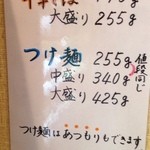 大盛り 255g
つけ麺 255g
中盛り 340g
大盛り 425g
値段同じ
つけ麺はあつもりもできます